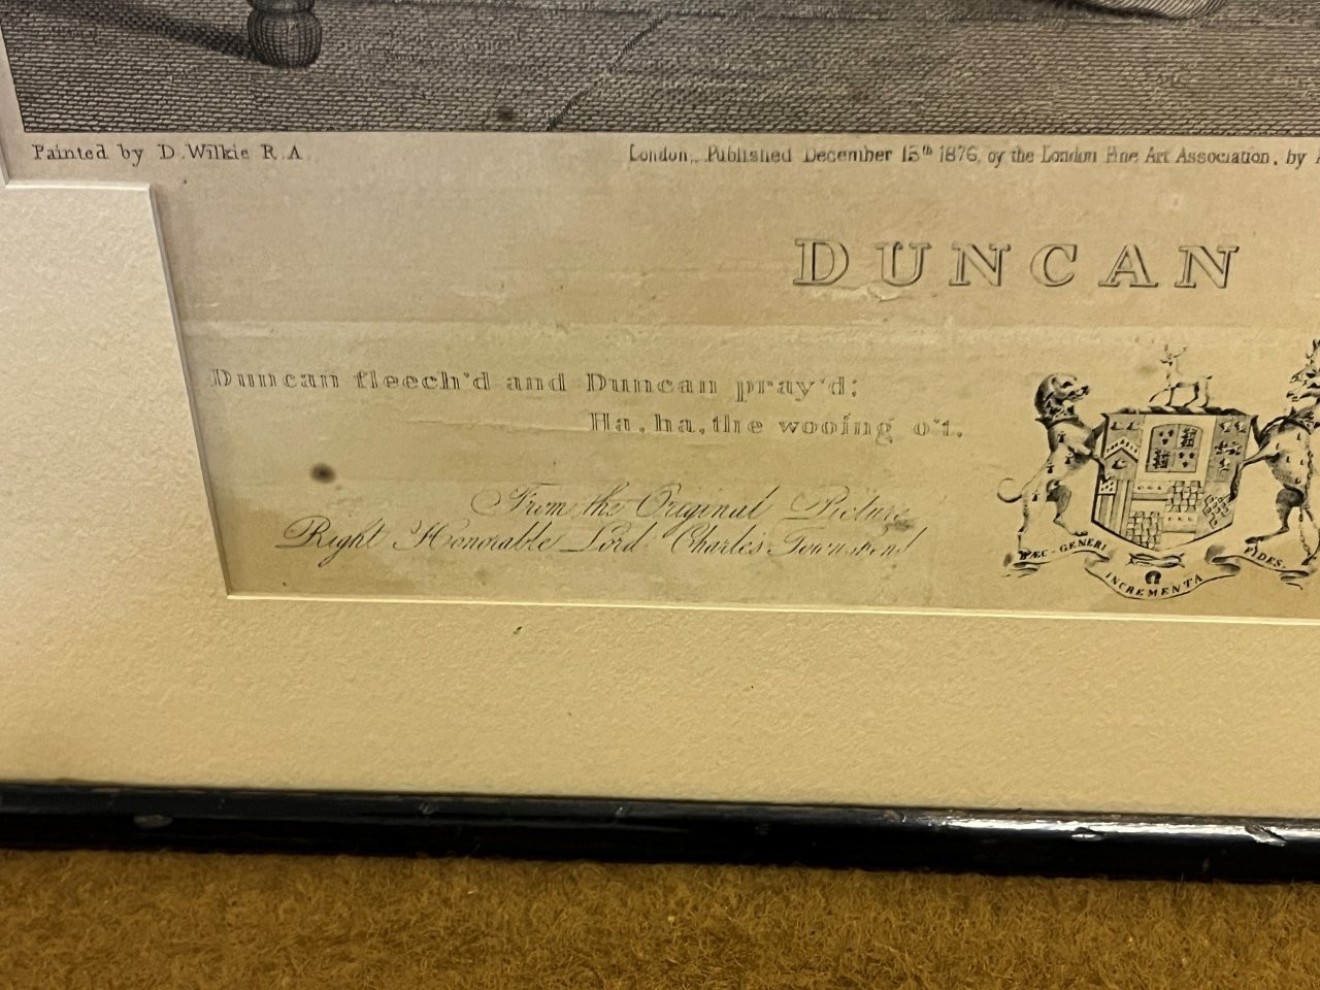 Painted by D. Wilkie R.A
London, Published December 15th 1876, by the London Fine Art Association, by
DUNCAN
Duncan fleech'd and Duncan pray'd;
Ha, ha, the wooing o't.
From the Original Picture
Right Honorable Lord Charles Townshend
HÆC-GENERI
INCREMENTA
FIDES.